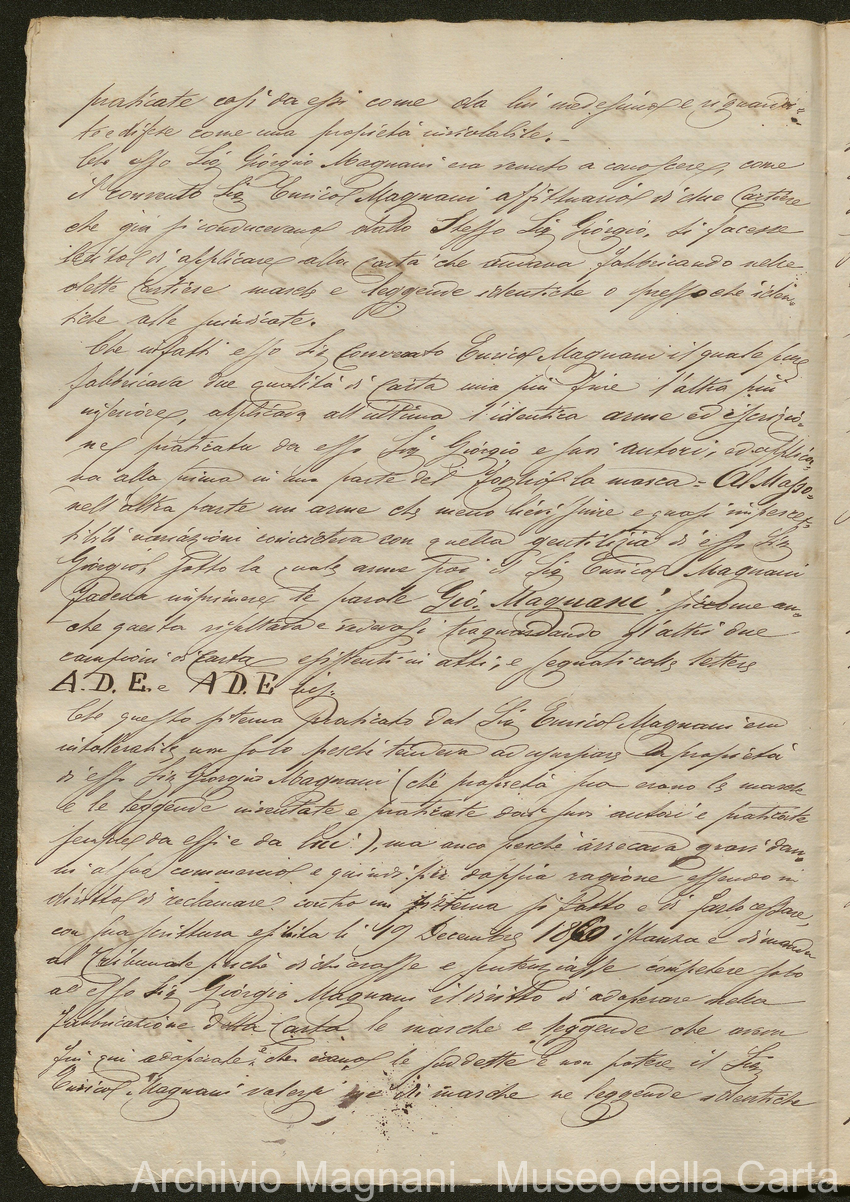 praticate così da essi come da lui medesimo e riguardi=
te difese come una propietà inviolabile. _
Che esso Sig. Giorgio Magnani era venuto a conoscere, come
il convenuto Sig. Enrico Magnani affittuario di due Cartiere
che già si conducevano dallo Stesso Sig. Giorgio, si facesse
lecito di applicare alla carta che andava fabbricando nelle
dette Cartiere marche e leggende identiche o presso che iden=
tiche alle
Che infatti esso Sig. Convenuto Enrico Magnani il quale pure
fabbricava due qualità di Carta una più fine l'altra più
inferiore, applicava all'ultima l'identica arme ed iscrizio=
ne praticata da esso Sig. Giorgio e suoi autori, ed applica=
va alla prima in una parte del foglio la marca = Al Masso =
nell'altra parte un arme che meno lievissime e quasi impercet=
tibili variazioni coincideva con quella gentilizia di esso Sig.
Giorgio, sotto la quale arme poi il Sig. Enrico Magnani
faceva imprimere le parole Gio. Magnani. siccome an=
che questa risultava e vedevasi traguardando gl'altri due
campioni di carta esistenti in atti, e segnati colle lettere
A. D. E. e A D. E bis.
Che questo sistema praticato dal Sig. Enrico Magnani era
intollerabile non solo perchè tendeva ad usurpare la propietà
di esso Sig. Giorgio Magnani (chè propietà sua erano le marche
e le leggende inventate e praticate dai suoi autori e praticate
sempre da essi e da lui), ma anco perchè arrecava gravi dan=
ni al suo commercio e quindi per doppia ragione essendo in
diritto di reclamare contro un sistema sì fatto e di farlo cessare,
con sua scrittura esibita li 19 Decembre 1860 istanza e dimanda
al Tribunale perchè dichiarasse e sentenziasse competere solo
ad esso Sig. Giorgio Magnani il diritto di adoperare nella
fabbricazione della Carta le marche e leggende che aveva
fin qui adoperate, e che erano le suddette e non potere il Sig.
Enrico Magnani valersi nè di marche ne leggende identiche
Archivio Magnani - Museo della Carta